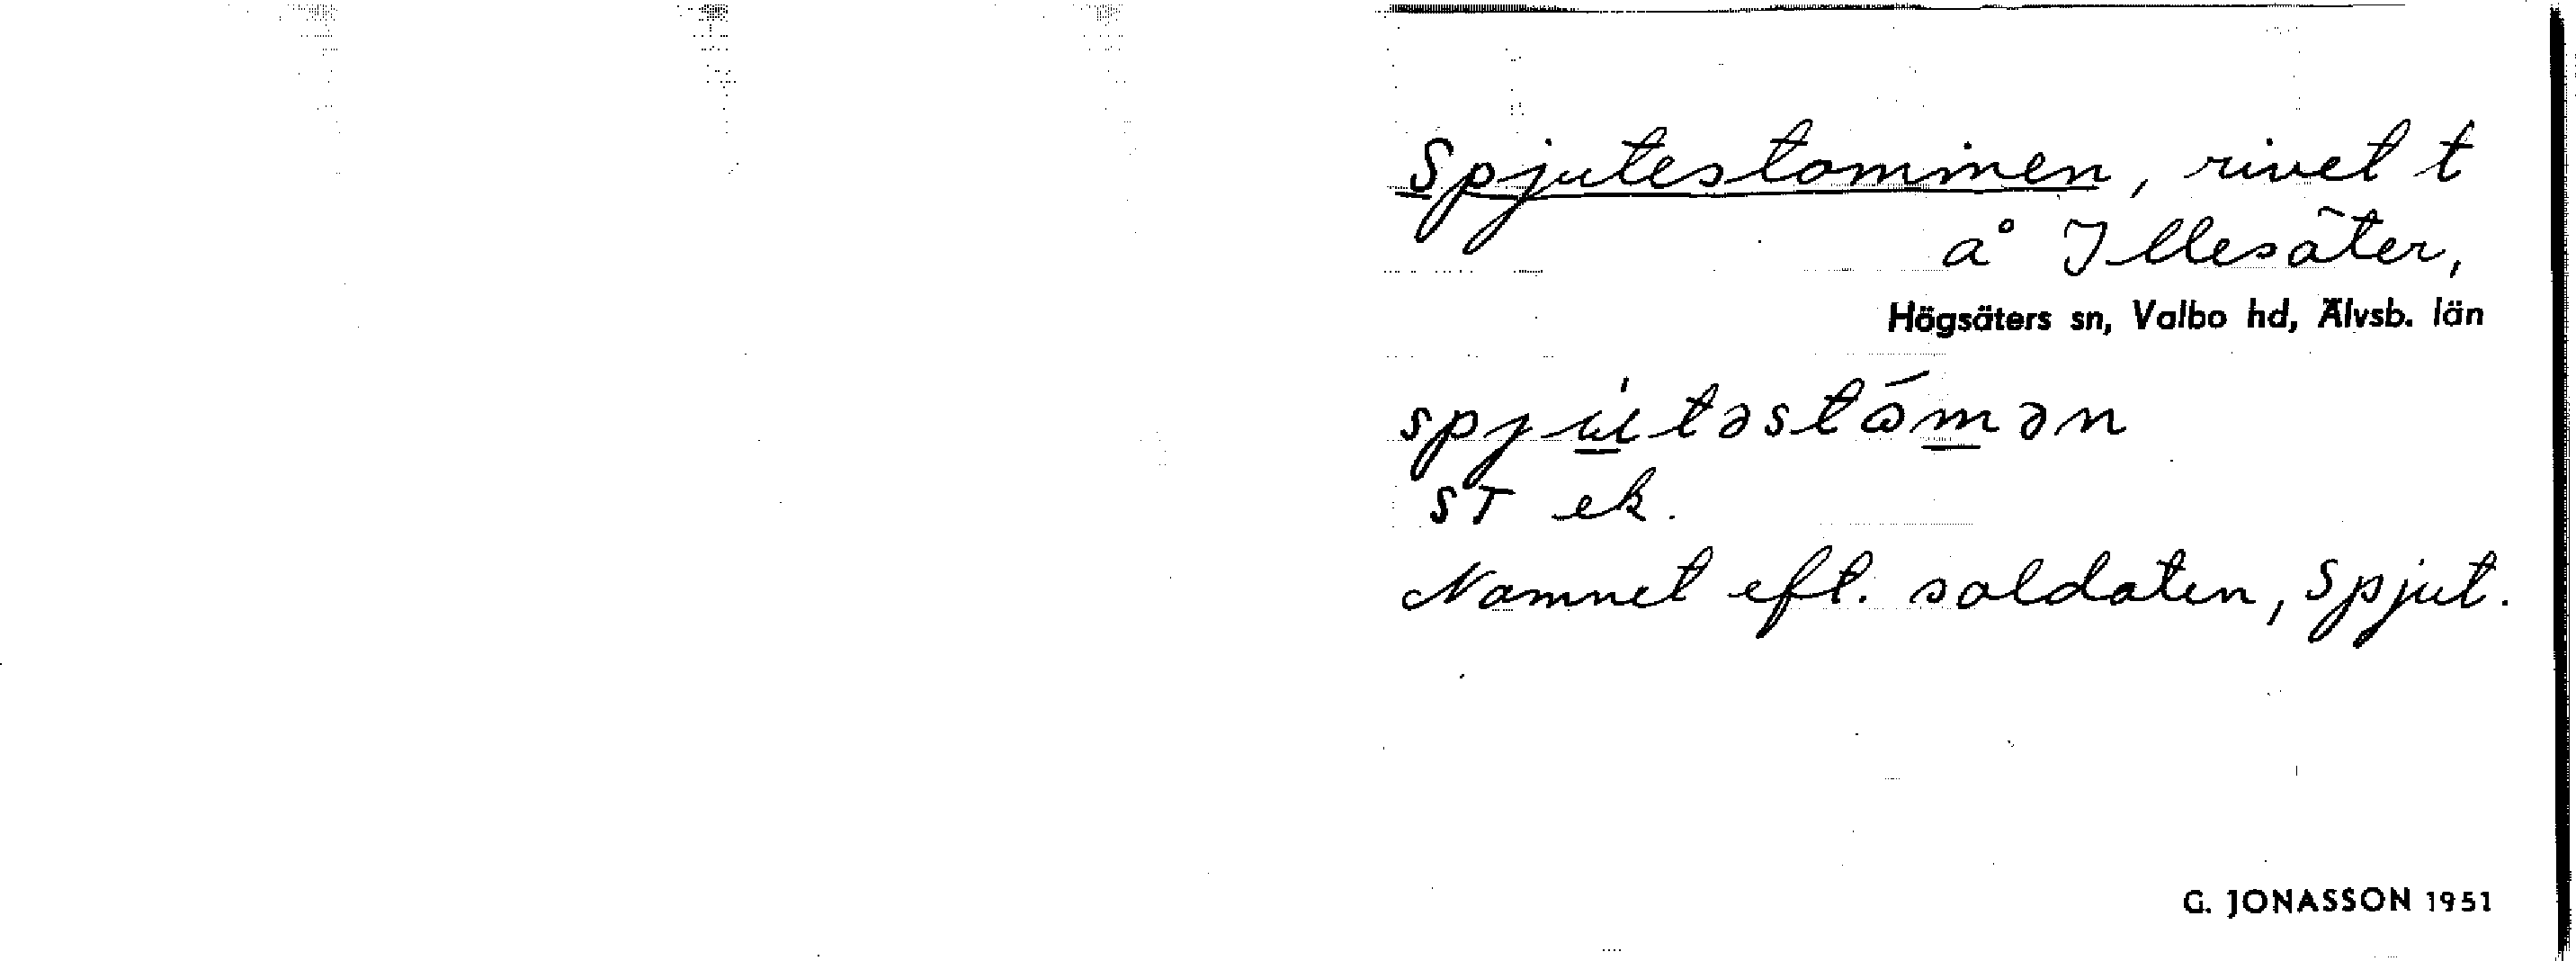 Spjutestommen, rivet t
å Illesäter,
Högsäters sn, Valbo hd, Älvsb. län
spjútəstómən
ST ek.
Namnet eft. soldaten, Spjut.
G. JONASSON 1951